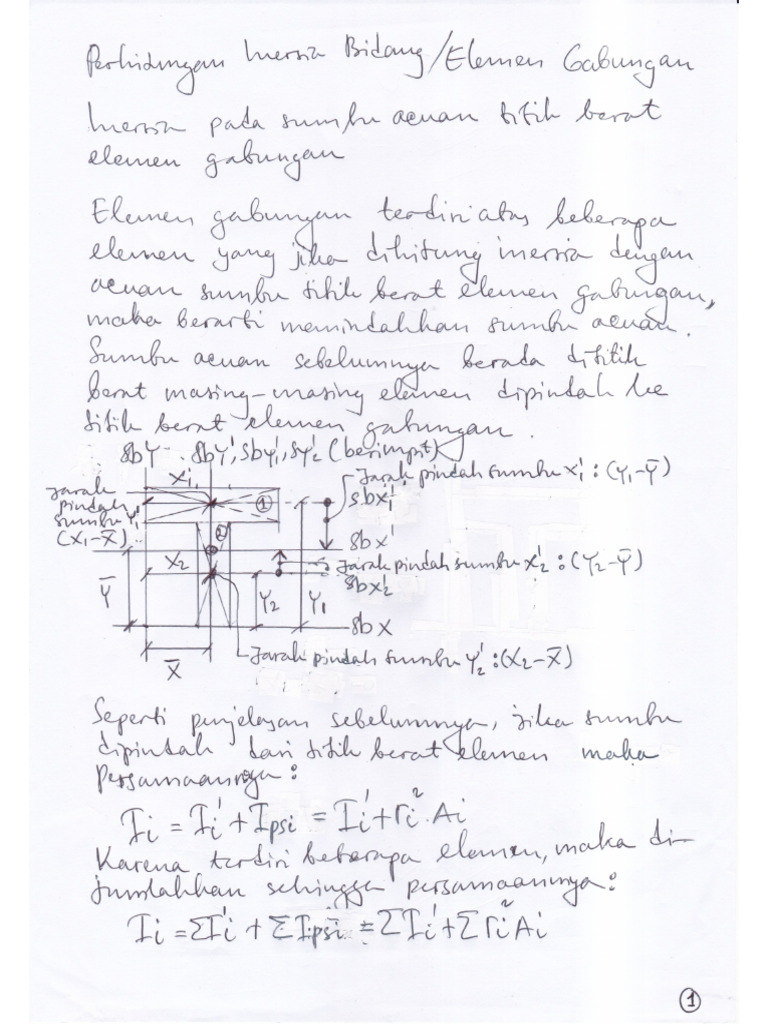 Perhitungan Inersia Bidang/Elemen Gabungan
Inersia pada sumbu acuan titik berat
elemen gabungan
Elemen gabungan terdiri atas beberapa
elemen yang jika dihitung inersia dengan
acuan sumbu titik berat elemen gabungan,
maka berarti memindahkan sumbu acuan.
Sumbu acuan sebelumnya berada dititik
berat masing-masing elemen dipindah ke
titik berat elemen gabungan.
sbY sbY', sbY₁', sY₂' (berimpit)
Jarak pindah sumbu x₁' : (Y₁-Ȳ)
Jarak
pindah
sumbu Y₁'
(X₁-X̄)
X₁
①
sbx₁'
②
sbx'
X₂
Jarak pindah sumbu x₂' : (Y₂-Ȳ)
sbx₂'
Ȳ
Y₂
Y₁
sbx
Jarak pindah sumbu Y₂' : (X₂-X̄)
X̄
Seperti penjelasan sebelumnya, jika sumbu
dipindah dari titik berat elemen maka
persamaannya :
Ii = Ii' + Ipsi = Ii' + ri² . Ai
Karena terdiri beberapa elemen, maka di-
jumlahkan sehingga persamaannya :
Ii = ΣIi' + ΣIpsi = ΣIi' + Σri² Ai
①